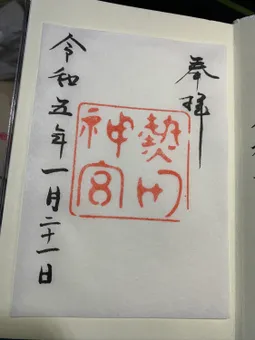 奉拝
熱田
神宮
令和五年一月二十一日